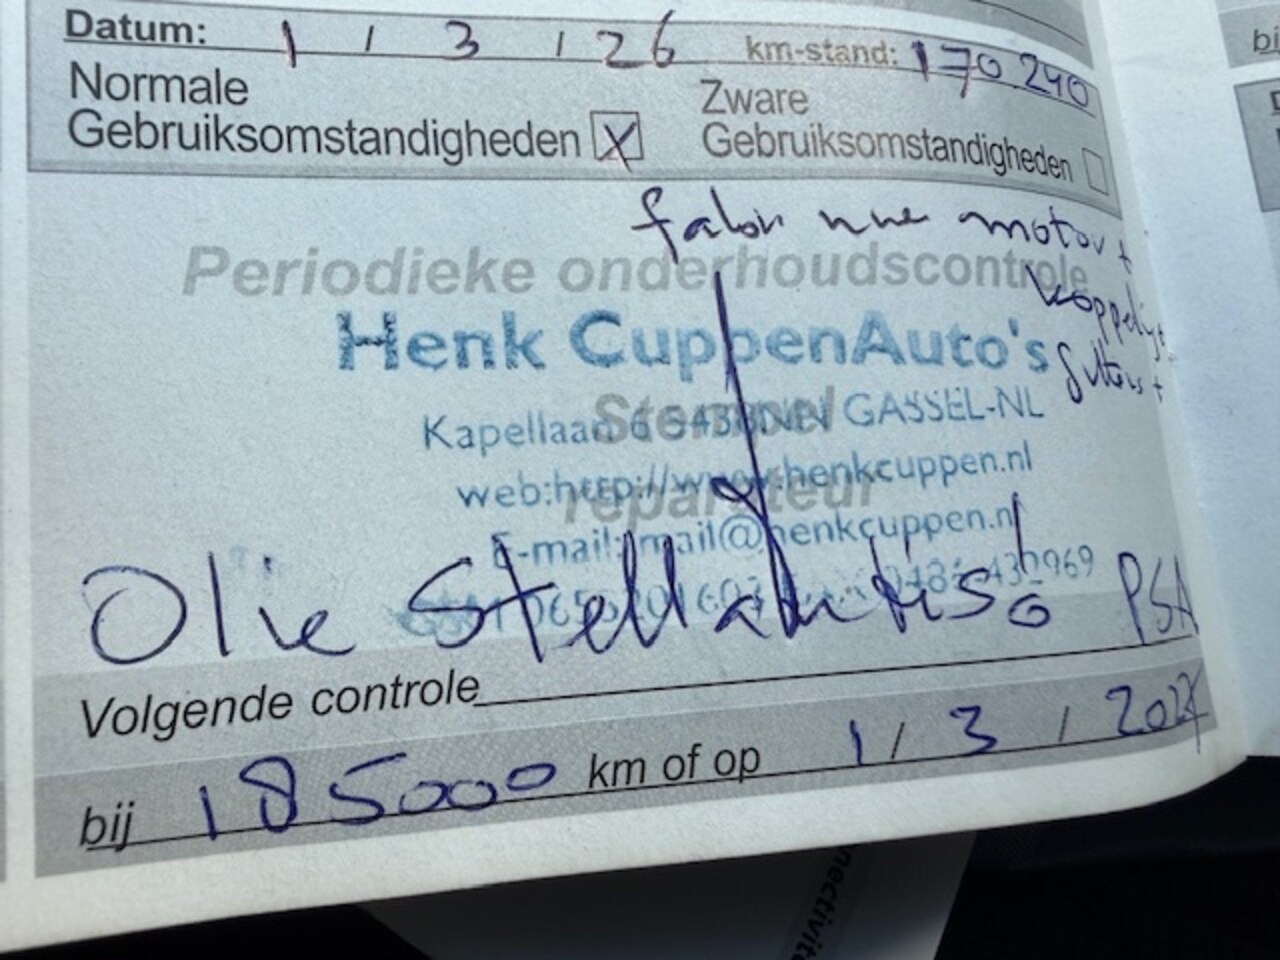 Datum: 1 / 3 / 26 km-stand: 170 240
Normale Gebruiksomstandigheden X
Zware Gebruiksomstandigheden
motor +
Periodieke onderhoudscontrole
Henk CuppenAuto's
Stempel
Kapellaan 6 GASSEL-NL
web:http://www.henkcuppen.nl
reparateur
E-mail: mail@henkcuppen.nl
Olie Stellantis PSA
Volgende controle
bij 185000 km of op 1 / 3 / 2027
bi